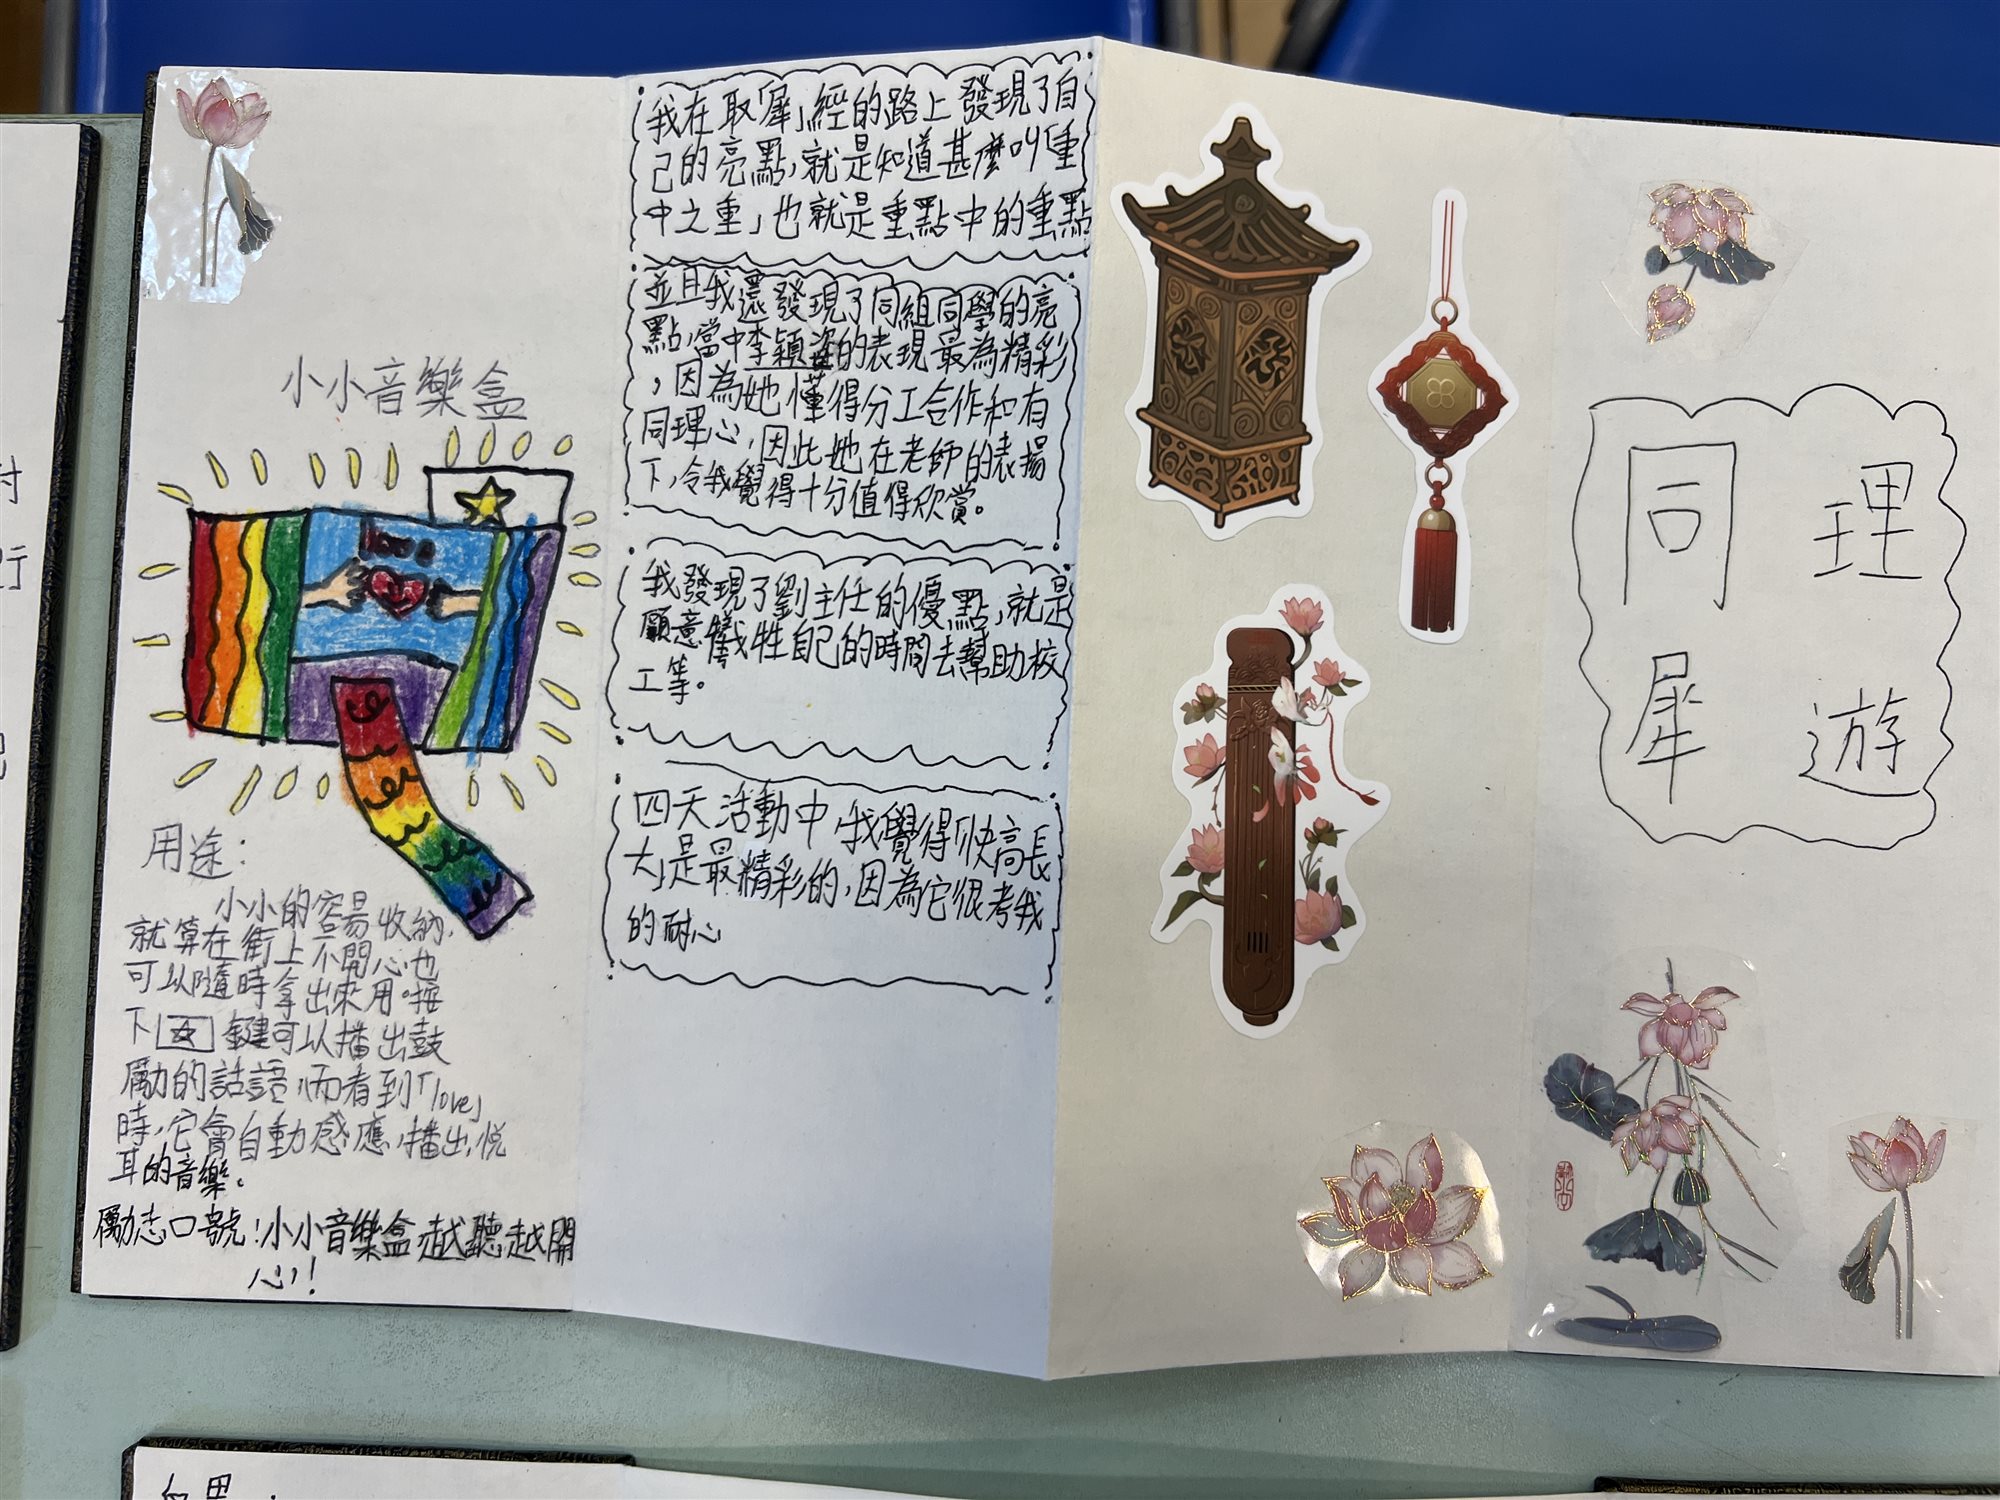 小小音樂盒
用途：
小小的容易收納，
就算在街上不開心也
可以隨時拿出來用。按
下☆鍵可以播出鼓
勵的話語，而看到「love」
時，它會自動感應，播出悅
耳的音樂。
勵志口號！小小音樂盒，越聽越開
心！
我在取「犀」經的路上發現了自
己的亮點，就是知道甚麼叫「重
中之重」也就是重點中的重點
並且我還發現了同組同學的亮
點，當中李穎姿的表現最為精彩
，因為她懂得分工合作和有
同理心，因此她在老師的表揚
下，令我覺得十分值得欣賞。
我發現了劉主任的優點，就是
願意犧牲自己的時間去幫助校
工等。
四天活動中，我覺得「快高長
大」是最精彩的，因為它很考我
的耐心
同理
犀遊
行